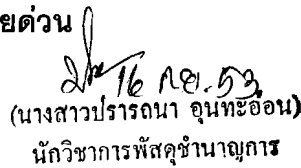 ยด่วน
16 ก.ย. 53
(นางสาวปรารถนา อุนทะอ่อน)
นักวิชาการพัสดุชำนาญการ